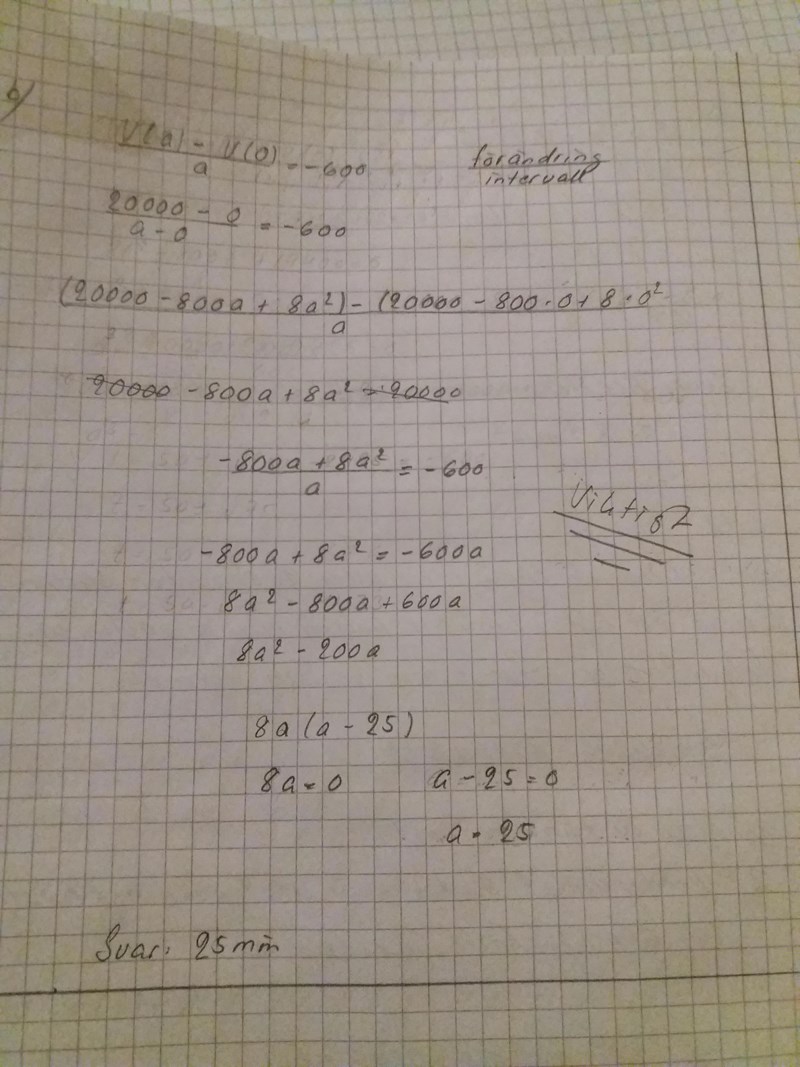 b)
V(a) - V(0) / a = -600
förändring / intervall
20000 - 0 / a - 0 = -600
(20000 - 800a + 8a²) - (20000 - 800·0 + 8·0² / a
20000 - 800a + 8a² - 20000
-800a + 8a² / a = -600
Viktigt
-800a + 8a² = -600a
8a² - 800a + 600a
8a² - 200a
8a(a - 25)
8a = 0 a - 25 = 0
a = 25
Svar: 25 min